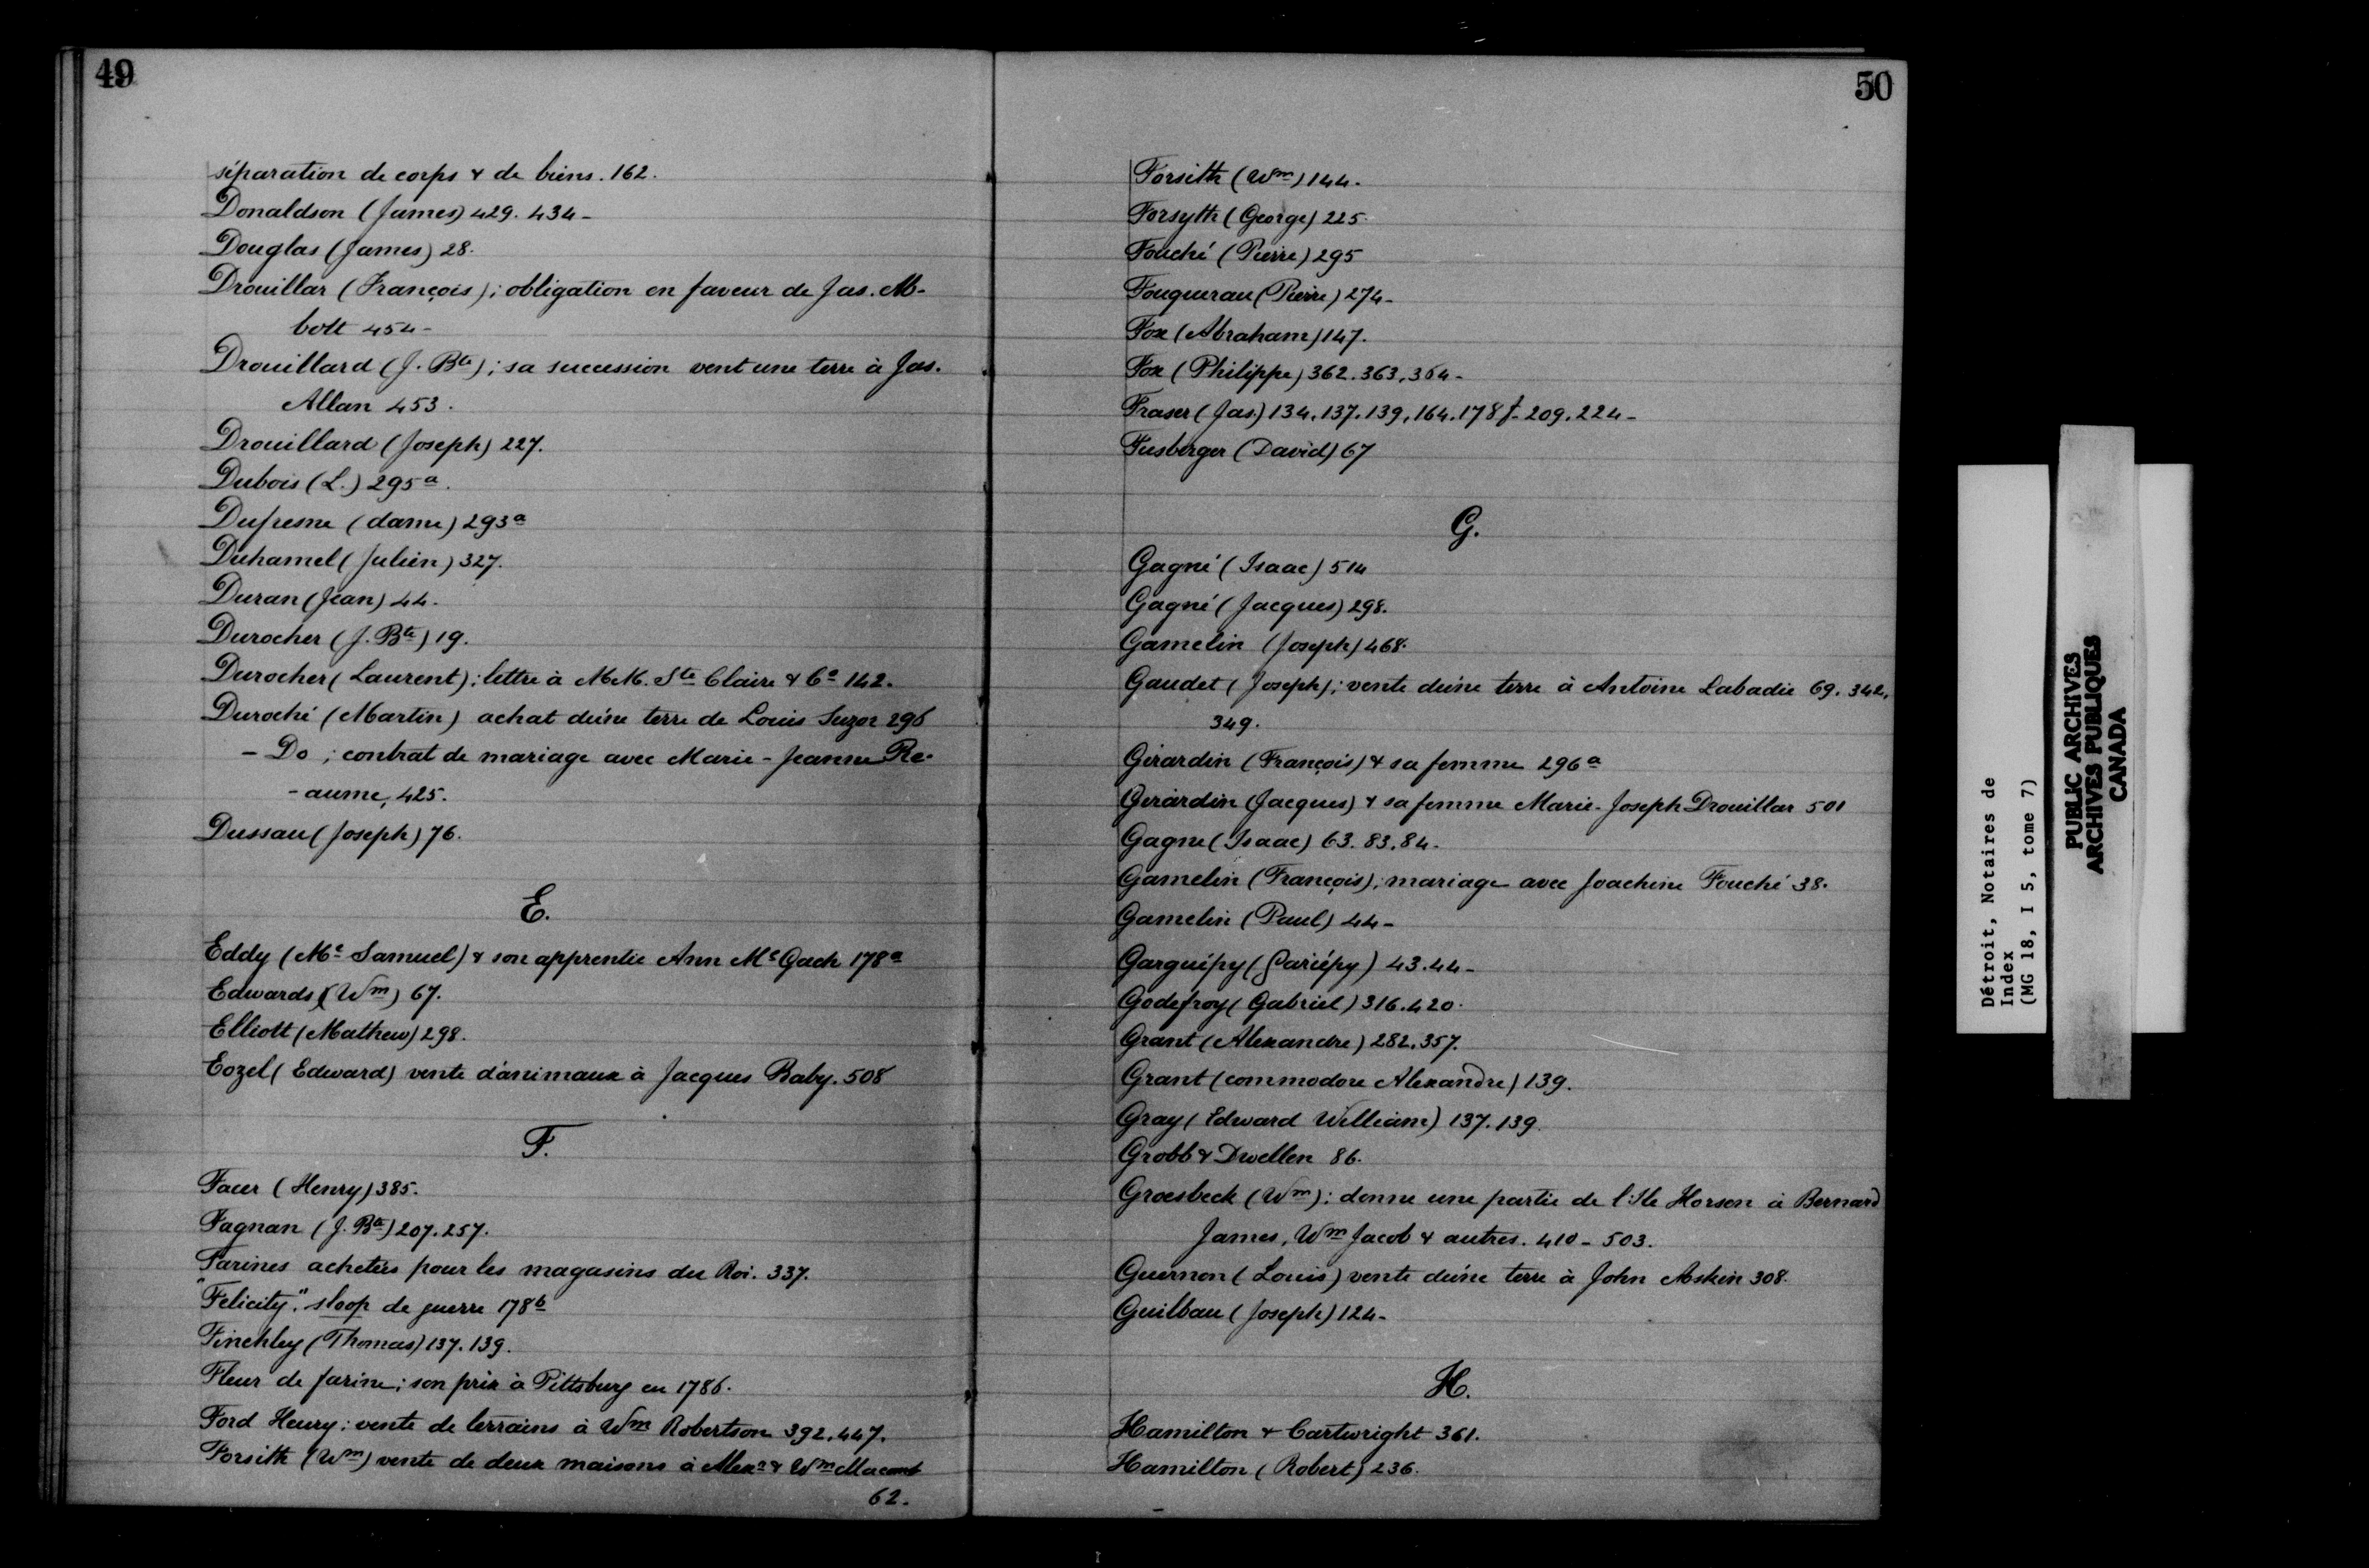 49
séparation de corps & de biens. 162.
Donaldson (James) 429. 434-
Douglas (James) 28.
Drouillar (François); obligation en faveur de Jas. Ab-
bott 454-
Drouillard (J. Bte); sa succession vent une terre à Jas.
Allan 453.
Drouillard (Joseph) 227.
Dubois (L.) 295a.
Dufresne (dame) 293a
Duhamel (Julien) 327.
Duran (Jean) 44.
Durocher (J. Bte) 19.
Durocher (Laurent); lettre à MM. Ste Claire & Co 142.
Duroché (Martin) achat d'une terre de Louis Suzor 296
- Do ; contrat de mariage avec Marie-Jeanne Re-
-aume, 425.
Dussau (Joseph) 76.
E.
Eddy (Me Samuel) & son apprentie Ann Mc Gach 178a
Edwards (Wm) 67.
Elliott (Mathew) 298.
Eozel (Edward) vente d'animaux à Jacques Baby. 508
F.
Facer (Henry) 385.
Fagnan (J. Bte) 207. 257.
Farines achetées pour les magasins du Roi. 337.
"Felicity," sloop de guerre 178b
Finchley (Thomas) 137. 139.
Fleur de farine; son prix à Pittsburg en 1786.
Ford Henry: vente de terrains à Wm Robertson 392. 447.
Forsith (Wm) vente de deux maisons à Alexr & Wm Macomb
62.
50
Forsith (Wm) 144.
Forsyth (George) 225.
Fouché (Pierre) 295
Fouquerau (Pierre) 274-
Fox (Abraham) 147.
Fox (Philippe) 362. 363. 364-
Fraser (Jas.) 134. 137. 139. 164. 178f- 209. 224-
Fusberger (David) 67
G.
Gagné (Isaac) 514
Gagné (Jacques) 298.
Gamelin (Joseph) 468.
Gaudet (Joseph); vente d'une terre à Antoine Labadie 69. 342,
349.
Girardin (François) & sa femme 296a
Girardin (Jacques) & sa femme Marie-Joseph Drouillar 501
Gagne (Isaac) 63. 83. 84-
Gamelin (François); mariage avec Joachine Fouché 38.
Gamelin (Paul) 44-
Garguépy (Gariépy) 43. 44-
Godefroy (Gabriel) 316. 420.
Grant (Alexandre) 282. 357.
Grant (commodore Alexandre) 139.
Gray (Edward William) 137. 139
Grobb & Dwellen 86.
Groesbeck (Wm): donne une partie de l'Ile Horson à Bernard
James, Wm Jacob & autres. 410 - 503.
Guernon (Louis) vente d'une terre à John Askin 308.
Guilbau (Joseph) 124-
H.
Hamilton & Cartwright 361.
Hamilton (Robert) 236.
Détroit, Notaires de
Index
(MG 18, I 5, tome 7)
PUBLIC ARCHIVES
ARCHIVES PUBLIQUES
CANADA